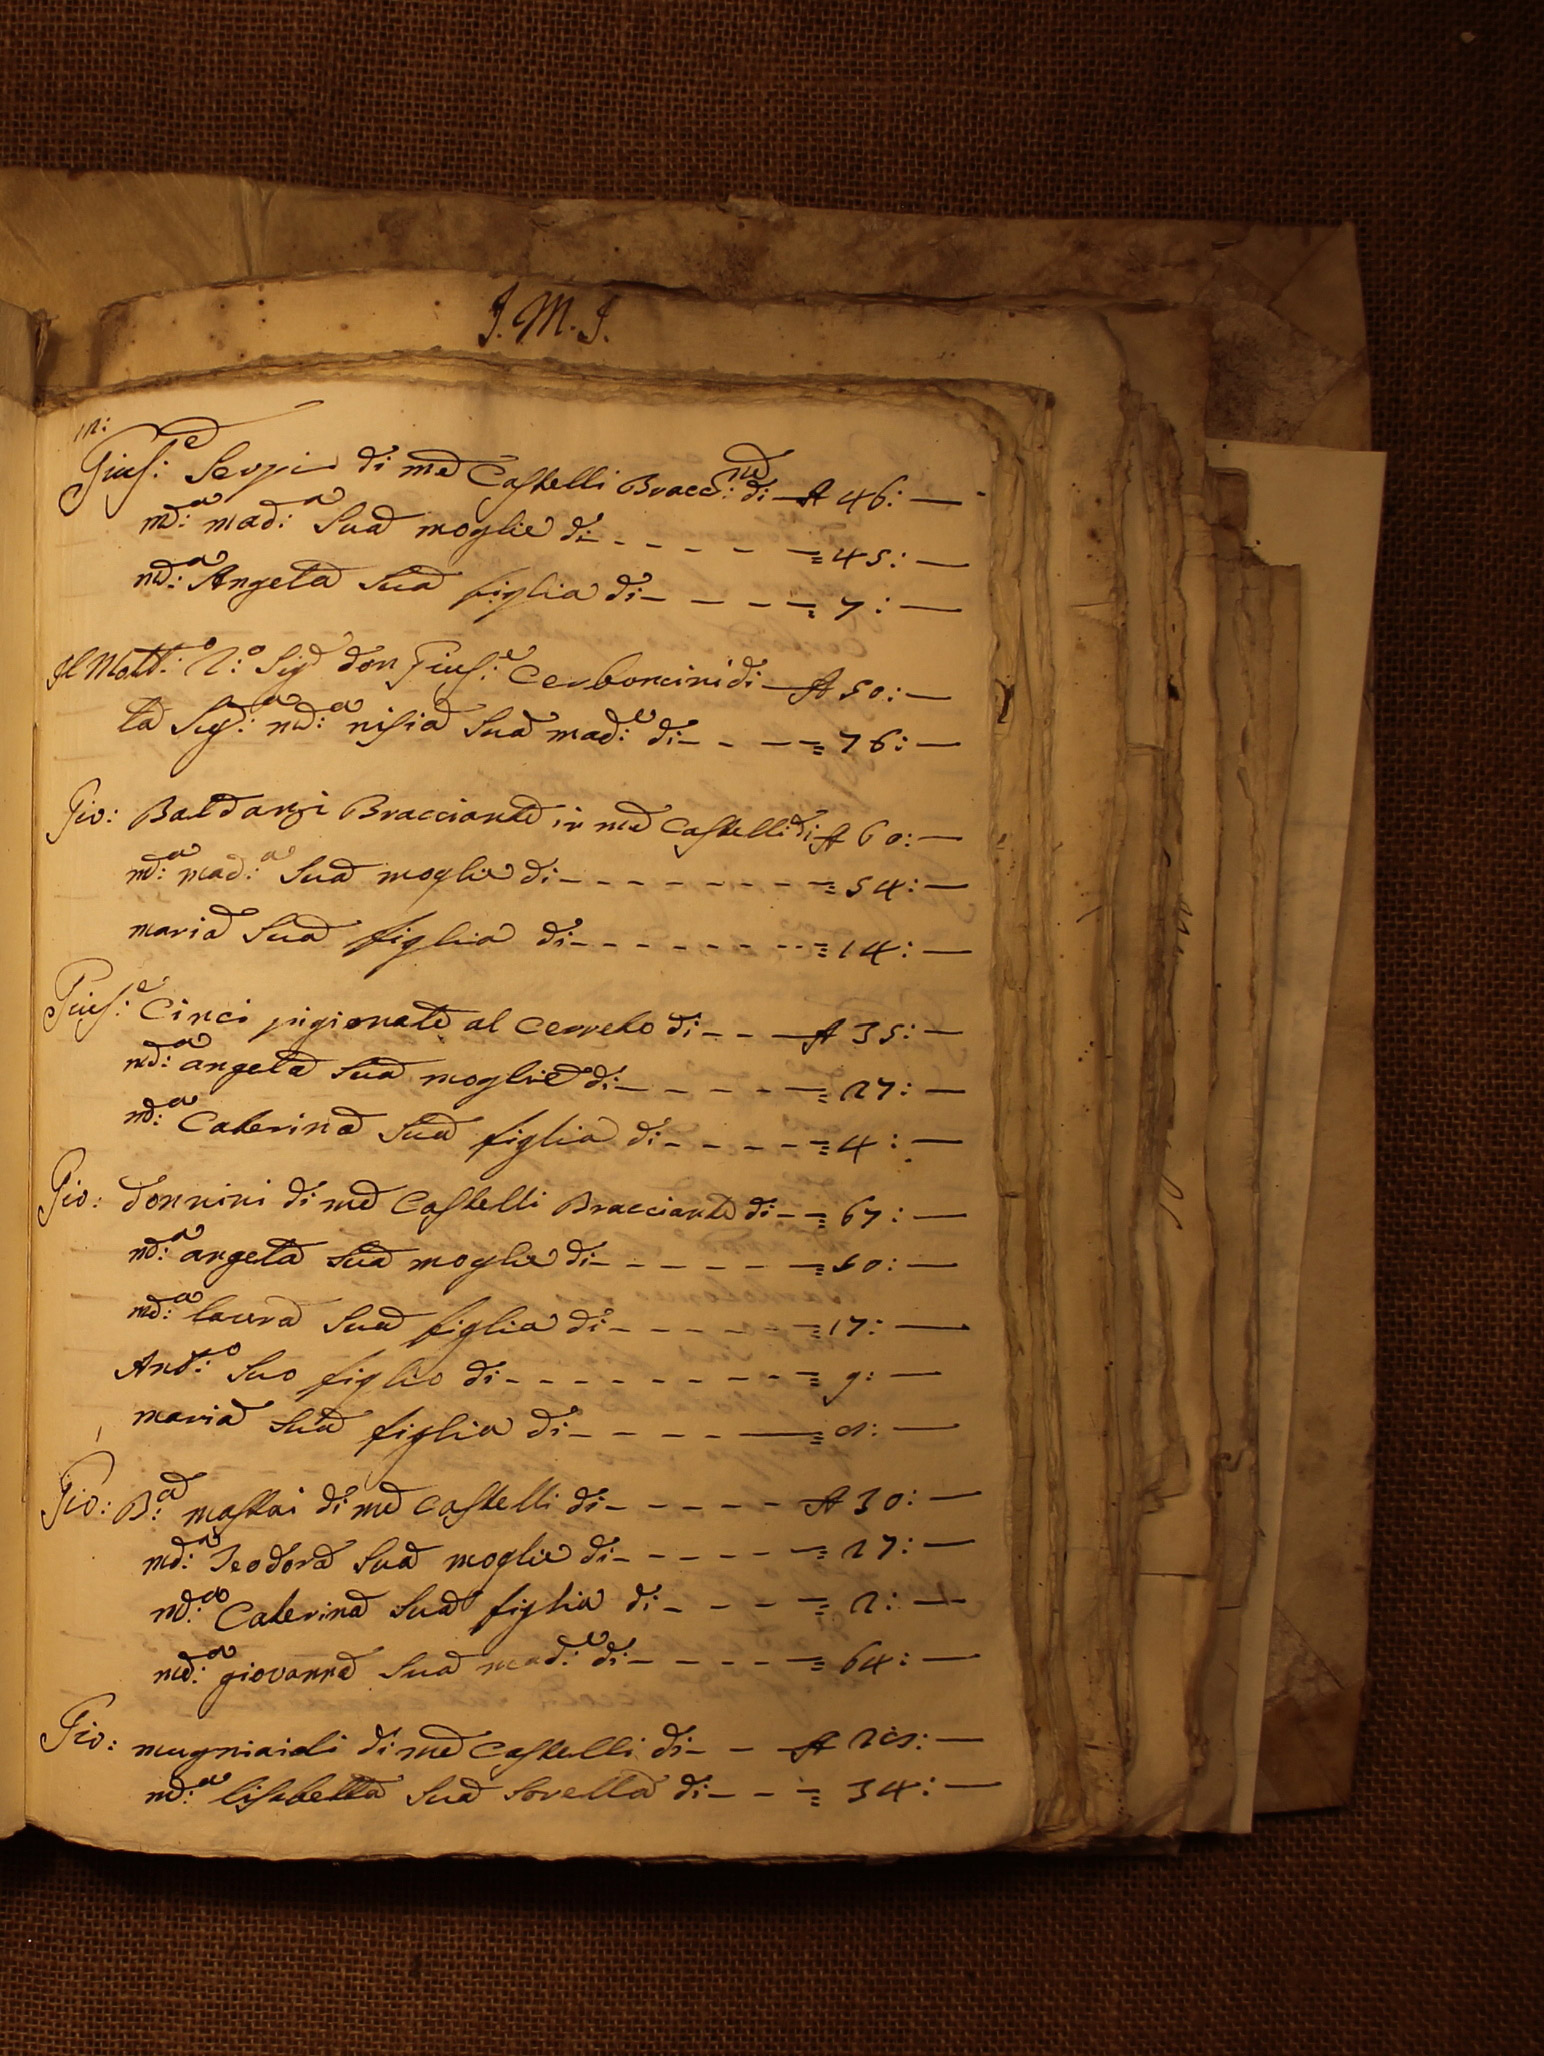 J. M. J.
Gius:e Serpi di me Castelli Bracc:te di A 46:
ma: mad:a Sua moglie di = 45:
ma: Angela Sua figlia di = 7:
Il Molt:o R:o Sig don Gius:e Cerboncini di A 50:
la Sig:a ma: nisia Sua mad:e di = 76:
Gio: Baldanzi Bracciante in me Castelli di A 60:
ma: mad:a Sua moglie di = 54:
maria Sua figlia di = 14:
Gius:e Cinci pigionale al Cerreto di A 35:
ma: angela Sua moglie di = 27:
ma: Caterina Sua figlia di = 4:
Gio: donnini di me Castelli Bracciante di = 67:
ma: angela Sua moglie di = 50:
ma: laura Sua figlia di = 17:
Ant:o Suo figlio di = 9:
maria Sua figlia di =
Gio: B:a mastai di me Castelli di A 30:
ma: Teodora Sua moglie di = 27:
ma: Caterina Sua figlia di = 2:
ma: giovanna Sua mad:e di = 64:
Gio: mugniaidi di me Castelli di A
ma: lisabetta Sua Sorella di = 34: